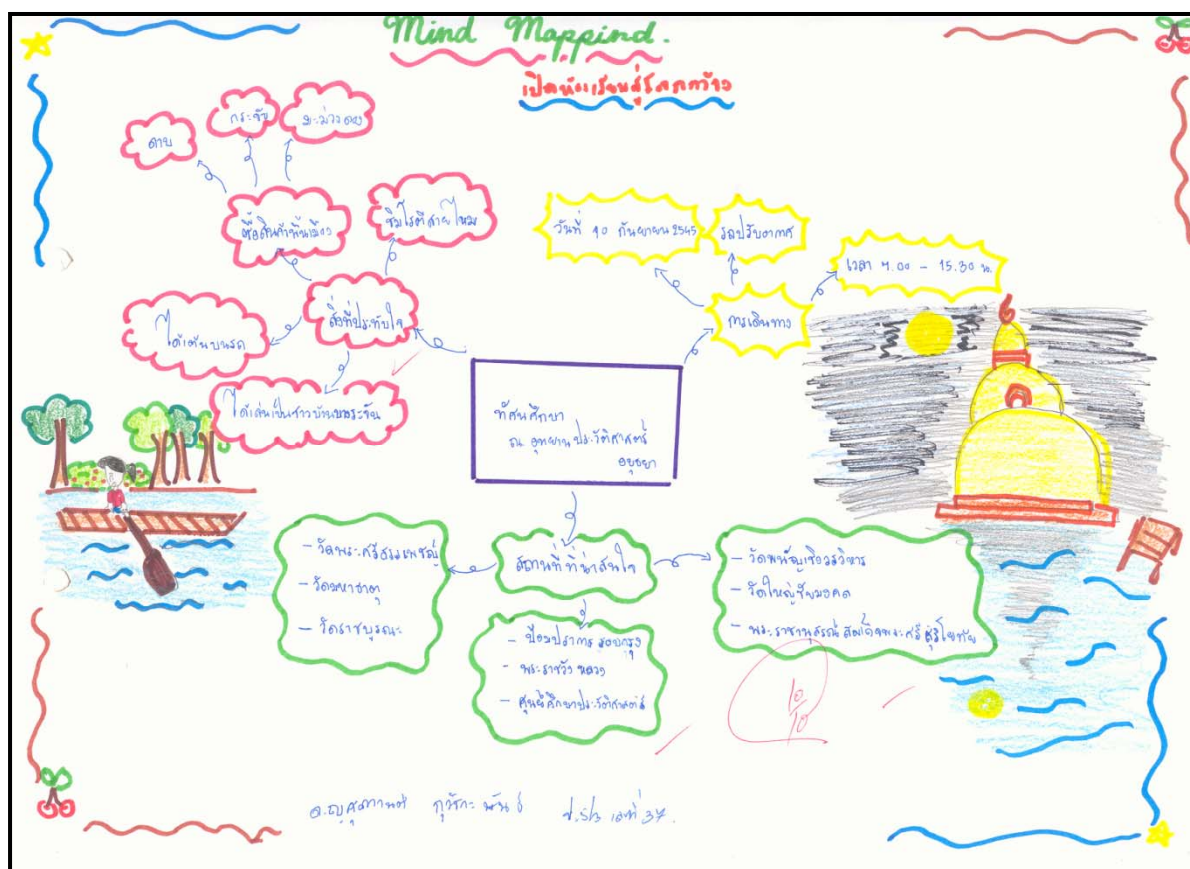 Mind Mappind.
เปิดห้องเรียนสู่โลกกว้าง
ดาบ
มะม่วงดอง
ซื้อสินค้าพื้นเมือง
ชิมโรตีสายไหม
สิ่งที่ประทับใจ
ได้เต้นบนรถ
ได้เล่นเป็นชาวบ้านบางระจัน
วันที่ 10 กันยายน 2545
รถปรับอากาศ
เวลา 7.00 - 15.30 น.
การเดินทาง
ทัศนศึกษา
ณ อุทยานประวัติศาสตร์
อยุธยา
สถานที่ที่น่าสนใจ
- วัดพระศรีสรรเพชญ์
- วัดมหาธาตุ
- วัดราชบูรณะ
- ป้อมปราการรอบกรุง
- พระราชวังหลวง
- ศูนย์ศึกษาประวัติศาสตร์
- วัดพนัญเชิงวรวิหาร
- วัดใหญ่ชัยมงคล
- พระราชานุสรณ์สมเด็จพระศรีสุริโยทัย
10
10
ด.ญ. ป.5/3 เลขที่ 37.